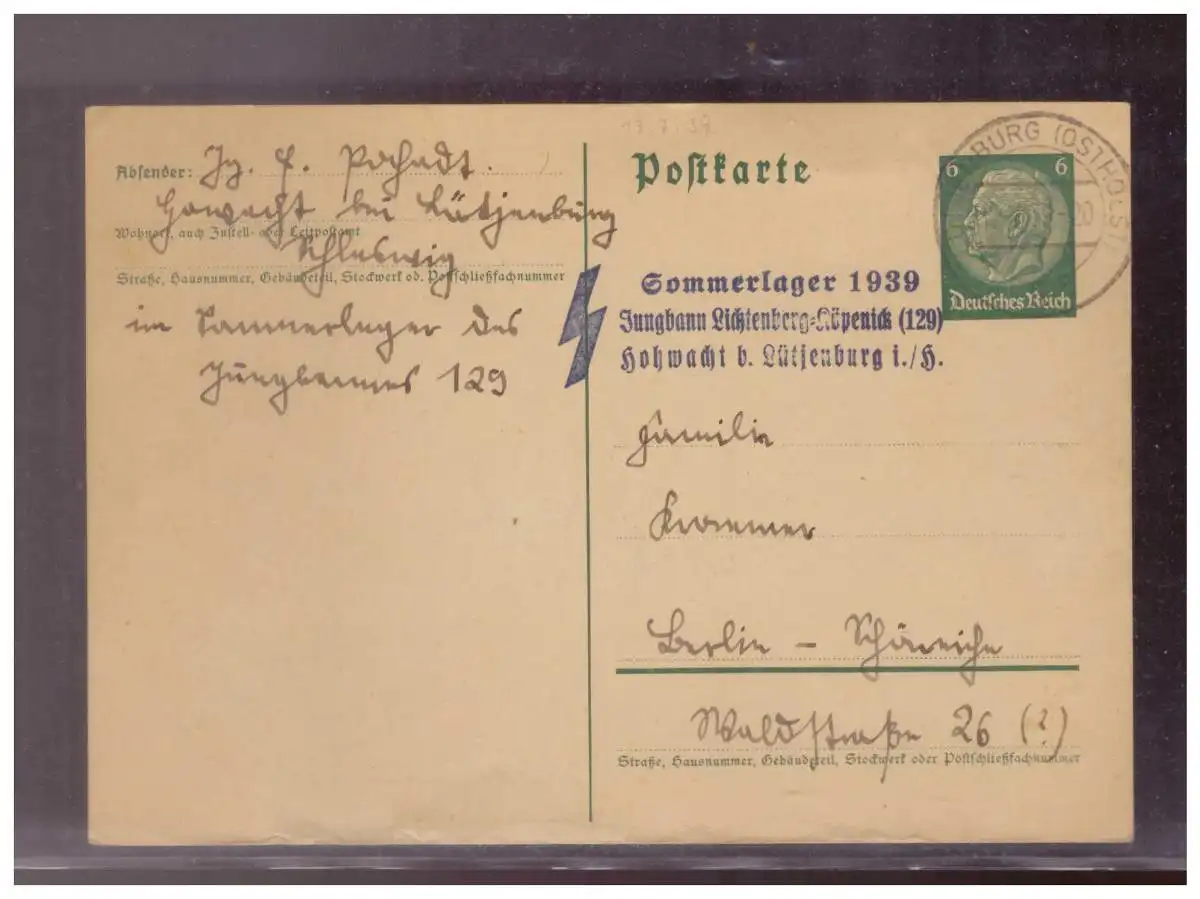 13.7.39.
Absender: Jg. E. Pochadt.
Howacht bei Lütjenburg
Wohnort, auch Zustell- oder Leitpostamt
Schleswig
Straße, Hausnummer, Gebäudeteil, Stockwerk od. Postschließfachnummer
im Sommerlager des
Jungbannes 129
Postkarte
BURG (OSTHOLST)
20
6 6
Deutsches Reich
Sommerlager 1939
Jungbann Lichtenberg-Köpenick (129)
Hohwacht b. Lütjenburg i./H.
Familie
Krommer
Berlin - Schöneiche
Waldstraße 26 (?)
Straße, Hausnummer, Gebäudeteil, Stockwerk oder Postschließfachnummer